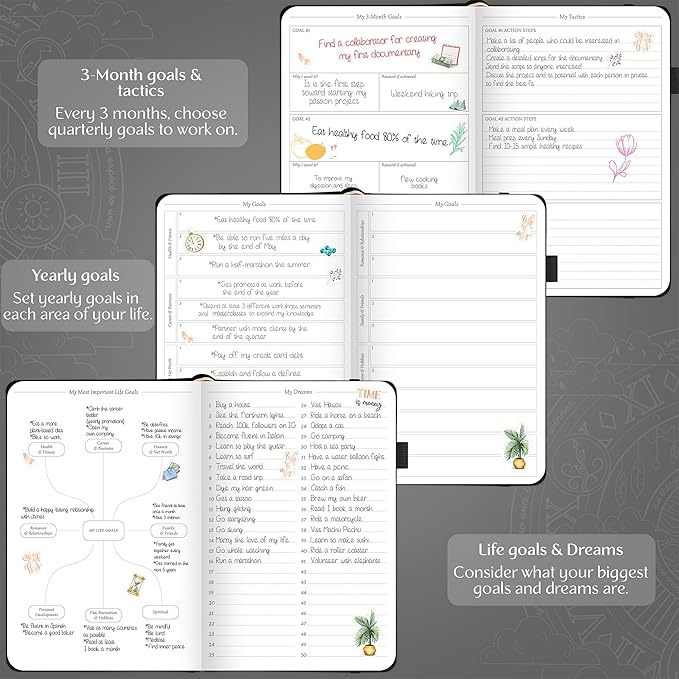 3-Month goals &
tactics
Every 3 months, choose
quarterly goals to work on.
My 3-Month Goals
GOAL #1
Find a collaborator for creating
my first documentary
Why I want it?
It is the first step
toward starting my
passion project
Reward if achieved
Weekend hiking trip
GOAL #2
Eat healthy food 80% of the time
Why I want it?
To improve my
digestion and
Reward if achieved
New cooking
books
My Tactics
GOAL #1 ACTION STEPS
Make a list of people who could be interested in
collaborating
Create a detailed script for the documentary
Send the script to anyone interested
Discuss the project and its potential with each person in private
to find the best fit
GOAL #2 ACTION STEPS
Make a meal plan every week
Meal prep every Sunday
Find 10-15 simple healthy recipes
Yearly goals
Set yearly goals in
each area of your life.
My Goals
Health & Fitness
1
*Eat healthy food 80% of the time
2
*Be able to run five miles a day
by the end of May
3
*Run a half-marathon this summer
Career & Business
1
*Get promoted at work before
the end of the year
2
*Attend at least 3 different workshops, seminars
and masterclasses to expand my knowledge
3
*Partner with more clients by the
end of the quarter
1
*Pay off my credit card debt
2
*Establish and follow a definite
My Goals
Romance & Relationships
1
2
3
Family & Friends
1
2
3
1
2
My Most Important Life Goals
*Eat a more
plant-based diet
*Bike to work
Health
& Fitness
*Climb the career
ladder
(yearly promotions)
*Open my
own company
Career &
Business
*Be debt-free
*Have passive income
*Have 10k in savings
Finance
& Net Worth
*Build a happy, lasting relationship
with James
Romance
& Relationships
MY LIFE GOALS
*See friends at least
once a month
*Have 3 children
Family
& Friends
*Family gets
together every
weekend
*Get married in the
next 5 years
Personal
Development
*Be fluent in Spanish
*Become a good baker
Fun, Recreation
& Hobbies
*Visit as many countries
as possible
*Read at least
1 book a month
Spiritual
*Be mindful
*Be kind
*Meditate
*Find inner peace
My Dreams
TIME
is money
1 Buy a house
2 See the Northern lights
3 Reach 100k followers on IG
4 Become fluent in Italian
5 Learn to play the guitar
6 Learn to surf
7 Travel the world
8 Take a road trip
9 Dye my hair green
10 Get a tattoo
11 Hang gliding
12 Go stargazing
13 Go skiing
14 Marry the love of my life
15 Go whale watching
16 Run a marathon
17
18
19
20
21
22
23
24
25
26 Visit Hawaii
27 Ride a horse on a beach
28 Adopt a cat
29 Go camping
30 Host a tea party
31 Have a water balloon fight
32 Have a picnic
33 Go on a safari
34 Catch a fish
35 Brew my own beer
36 Read 1 book a month
37 Ride a motorcycle
38 Visit Machu Picchu
39 Learn to make sushi
40 Ride a roller coaster
41 Volunteer with elephants
42
43
44
45
46
47
48
49
50
Life goals & Dreams
Consider what your biggest
goals and dreams are.